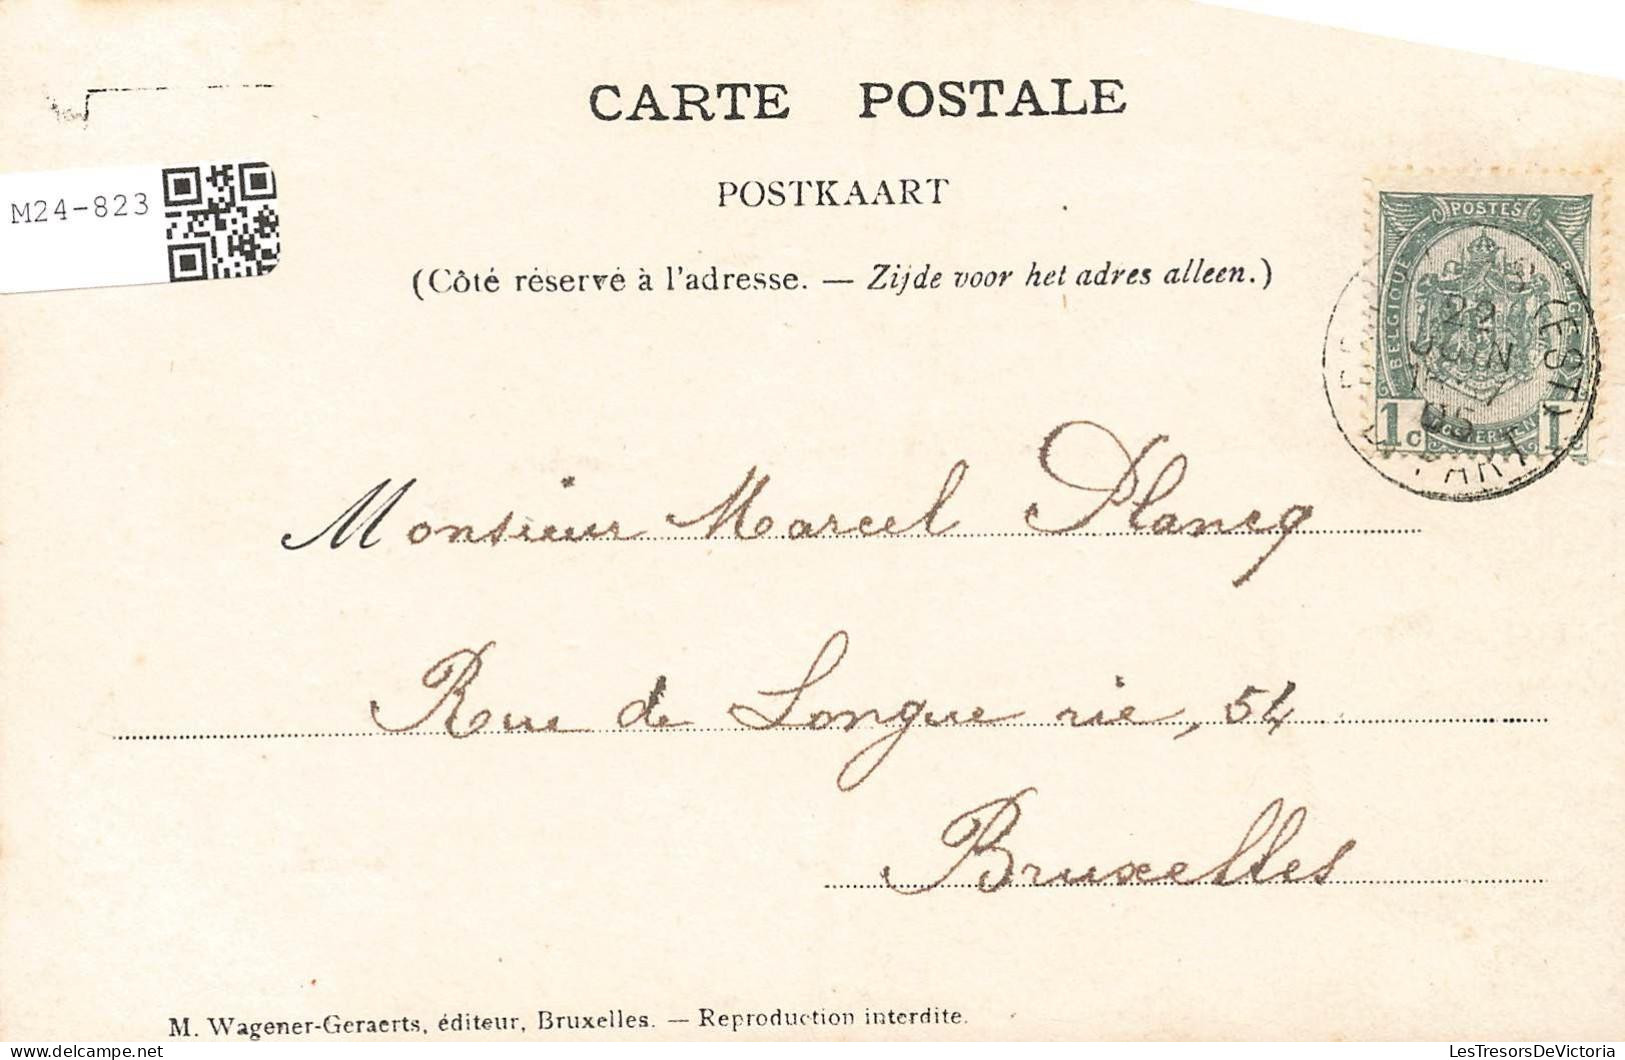 CARTE POSTALE
POSTKAART
M24-823
(Côté réservé à l'adresse. — Zijde voor het adres alleen.)
POSTES
BELGIQUE
22
JUIN
05
(EST)
1c
1c
Monsieur Marcel Plancq
Rue de Longue vie, 54
Bruxelles
M. Wagener-Geraerts, éditeur, Bruxelles. — Reproduction interdite.
LesTresorsDeVictoria